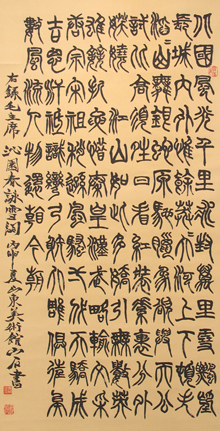 北國風光千里冰封萬里雪飄望
長城內外惟餘莽莽大河上下頓失
滔滔山舞銀蛇原馳蠟象欲與天公
試比高須晴日看紅裝素裹分外
妖嬈江山如此多嬌引無數英
雄競折腰惜秦皇漢武略輸文采
唐宗宋祖稍遜風騷一代天驕成
吉思汗只識彎弓射大雕俱往矣
數風流人物還看今朝
右錄毛主席沁園春詠雪詞丙申夏山東美術館書